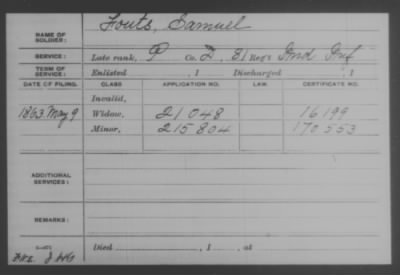 NAME OF SOLDIER: Fouts, Samuel
SERVICE: Late rank, P Co. D, 81 Reg't Ind Inf
TERM OF SERVICE: Enlisted , 1 Discharged , 1
DATE OF FILING. CLASS APPLICATION NO. LAW. CERTIFICATE NO.
Invalid,
1863 May 9 Widow, 21048 16199
Minor, 215804 170553
ADDITIONAL SERVICES:
REMARKS:
Died , 1 , at